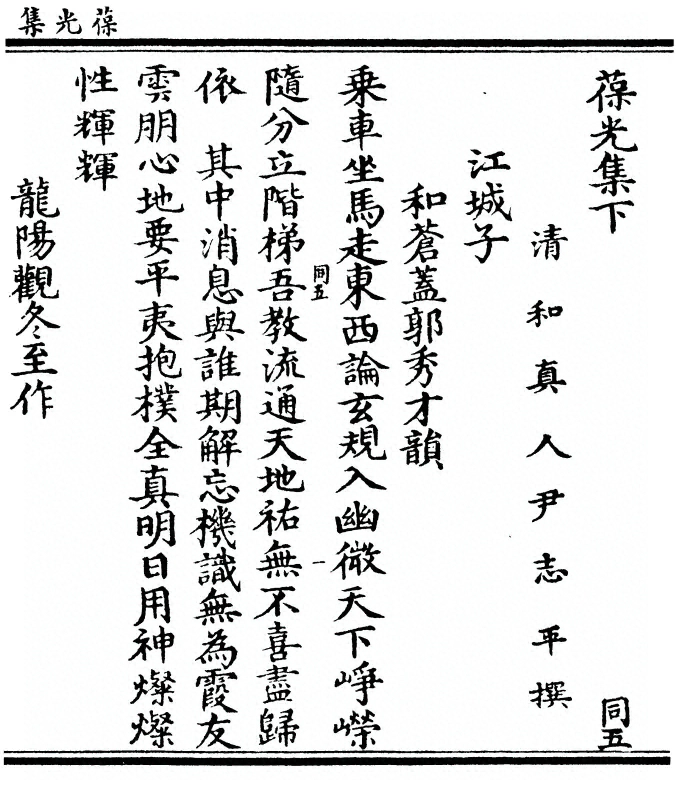 葆光集
葆光集下
同五
清和真人尹志平撰
江城子
和蒼蓋郭秀才韻
乗車坐馬走東西論玄規入幽微天下崢嶸
同五
一
隨分立階梯吾教流通天地祐無不喜盡歸
依　其中消息與誰期解忘機識無為霞友
雲朋心地要平夷抱樸全真明日用神燦燦
性輝輝
龍陽觀冬至作